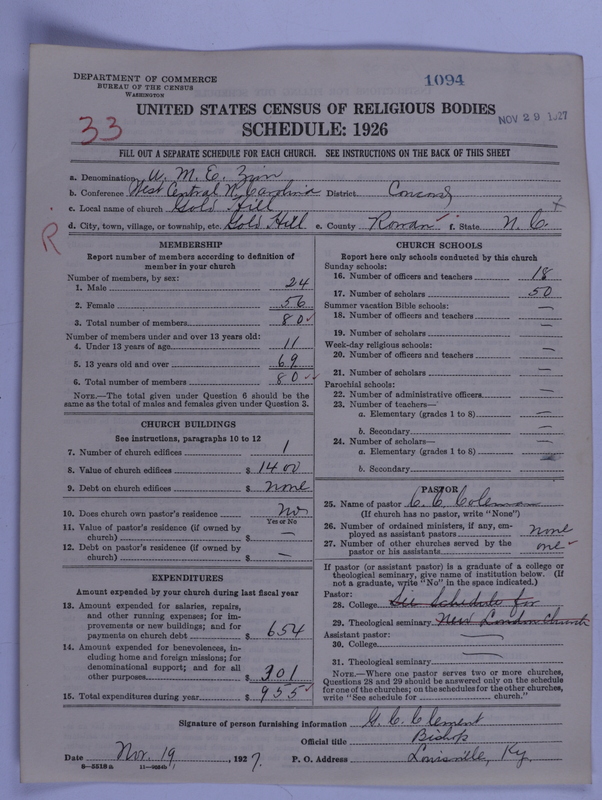 DEPARTMENT OF COMMERCE
BUREAU OF THE CENSUS
WASHINGTON
1094
UNITED STATES CENSUS OF RELIGIOUS BODIES
SCHEDULE: 1926
NOV 29 1927
33
FILL OUT A SEPARATE SCHEDULE FOR EACH CHURCH. SEE INSTRUCTIONS ON THE BACK OF THIS SHEET
a. Denomination A. M. E. Zion
b. Conference West Central N. Carolina District Concord
c. Local name of church Gold Hill x
d. City, town, village, or township, etc. Gold Hill e. County Rowan f. State N. C.
R
MEMBERSHIP
Report number of members according to definition of
member in your church
Number of members, by sex:
1. Male 24
2. Female 56
3. Total number of members 80 ✓
Number of members under and over 13 years old:
4. Under 13 years of age 11
5. 13 years old and over 69
6. Total number of members 80 ✓✓
NOTE.—The total given under Question 6 should be the
same as the total of males and females given under Question 3.
CHURCH BUILDINGS
See instructions, paragraphs 10 to 12
7. Number of church edifices 1
8. Value of church edifices $ 1400
9. Debt on church edifices $ none
10. Does church own pastor's residence No
Yes or No
11. Value of pastor's residence (if owned by
church) $ —
12. Debt on pastor's residence (if owned by
church) $ —
EXPENDITURES
Amount expended by your church during last fiscal year
13. Amount expended for salaries, repairs,
and other running expenses; for im-
provements or new buildings; and for
payments on church debt $ 654
14. Amount expended for benevolences, in-
cluding home and foreign missions; for
denominational support; and for all
other purposes $ 301
15. Total expenditures during year $ 955 ✓
CHURCH SCHOOLS
Report here only schools conducted by this church
Sunday schools:
16. Number of officers and teachers 18
17. Number of scholars 50
Summer vacation Bible schools: —
18. Number of officers and teachers —
19. Number of scholars —
Week-day religious schools: —
20. Number of officers and teachers —
21. Number of scholars —
Parochial schools:
22. Number of administrative officers —
23. Number of teachers—
a. Elementary (grades 1 to 8) —
b. Secondary —
24. Number of scholars— —
a. Elementary (grades 1 to 8) —
b. Secondary
PASTOR
25. Name of pastor C. C. Coleman
(If church has no pastor, write "None")
26. Number of ordained ministers, if any, em-
ployed as assistant pastors none
27. Number of other churches served by the
pastor or his assistants one
If pastor (or assistant pastor) is a graduate of a college or
theological seminary, give name of institution below. (If
not a graduate, write "No" in the space indicated.)
Pastor:
28. College See Schedule for
29. Theological seminary New London Church
Assistant pastor:
30. College —
31. Theological seminary —
NOTE.—Where one pastor serves two or more churches,
Questions 28 and 29 should be answered only on the schedule
for one of the churches; on the schedules for the other churches,
write "See schedule for church."
Signature of person furnishing information G. C. Clement
Official title Bishop
Date Nov. 19, 1927. P. O. Address Louisville, Ky.